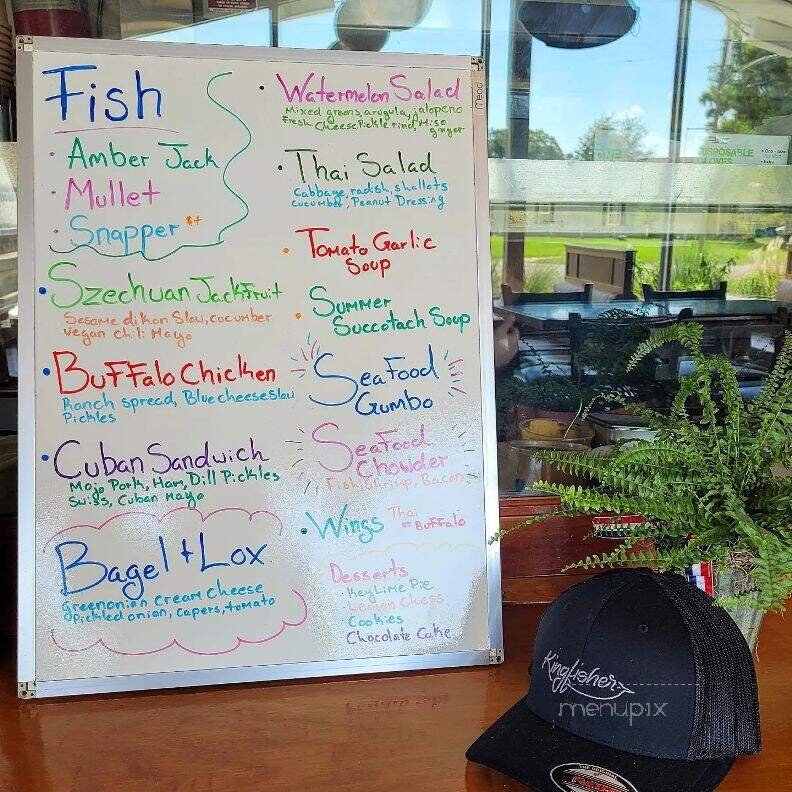 Fish
Amber Jack
Mullet
Snapper $+
Szechuan JackFruit
Sesame dikon Slaw, cucumber
Vegan chili Mayo
Buffalo Chicken
Ranch spread, Blue cheese slaw
Pickles
Cuban Sandwich
Mojo Pork, Ham, Dill Pickles
Swiss, Cuban Mayo
Bagel + Lox
greenonion cream cheese
pickled onion, capers, tomato
Watermelon Salad
Mixed greens, arugula, jalopeno
Fresh Cheese, Pickle rind, Miso
ginger
Thai Salad
Cabbage, radish, shallots
cucumber, Peanut Dressing
Tomato Garlic
Soup
Summer
Succotach Soup
Seafood
Gumbo
Seafood
Chowder
Fish, Shrimp, Bacon
Wings Thai
or Buffalo
Desserts
Key Lime Pie
Lemon Chess
Cookies
Chocolate Cake
Mead
Kingfisher
menupix
THE ORIGINAL